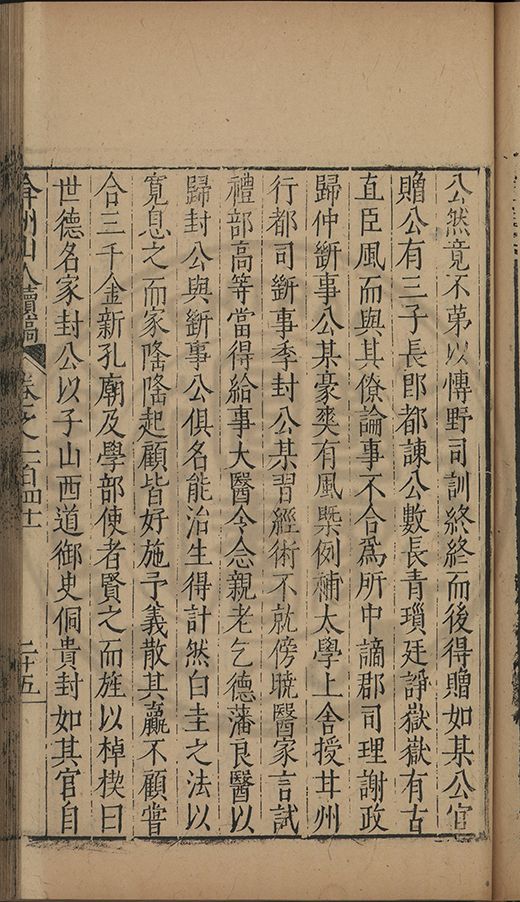 公然竟不苐以博野司訓終終而後得贈如某公官
贈公有三子長卽都諫公數長青瑣廷諍嶽嶽有古
直臣風而與其僚論事不合爲所中謫郡司理謝政
歸仲斷事公某豪爽有風槩例補太學上舍授甘州
行都司斷事季封公某習經術不就傍曉醫家言試
禮部高等當得給事大醫令念親老乞德藩良醫以
歸封公與斷事公俱名能治生得計然白圭之法以
寬息之而家隆隆起顧皆好施予義散其羸不顧嘗
合三千金新孔廟及學部使者賢之而旌以棹楔曰
世德名家封公以子山西道御史侗貴封如其官自
弇州山人續稿 卷之一百四十 二十五